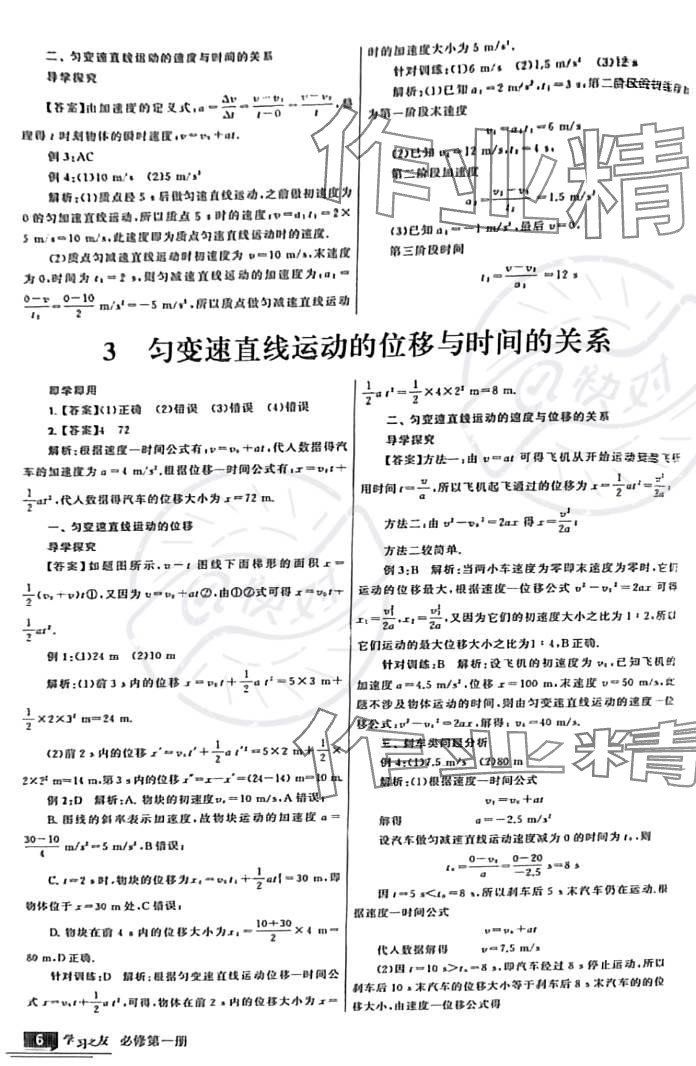 二、匀变速直线运动的速度与时间的关系
导学探究
【答案】由加速度的定义式,a=Δv/Δt=(v-v₀)/(t-0)=(v-v₀)/t,整
理得 t 时刻物体的瞬时速度,v=v₀+at.
例 3:AC
例 4:(1)10 m/s (2)5 m/s²
解析:(1)质点经 5 s 后做匀速直线运动,之前做初速度为
0 的匀加速直线运动,所以质点 5 s 时的速度:v=a₁t₁=2×
5 m/s=10 m/s,此速度即为质点匀速直线运动时的速度.
(2)质点匀减速直线运动时初速度为 v=10 m/s,末速度
为 0,时间为 t₁=2 s,则匀减速直线运动的加速度为,a₁=
(0-v)/t₁=(0-10)/2 m/s²=-5 m/s²,所以质点做匀减速直线运动
时的加速度大小为 5 m/s².
针对训练:(1)6 m/s (2)1.5 m/s² (3)12 s
解析:(1)已知 a₁=2 m/s²,t₁=3 s,第二阶段的初速度即
为第一阶段末速度
v₁=a₁t₁=6 m/s
(2)已知 v₂=12 m/s,t₂=4 s,
第二阶段加速度
=1.5 m/s²
(3)已知 a₃=-1 m/s²,最后 v=0.
第三阶段时间
t₃=(v-v₂)/a₃=12 s
3 匀变速直线运动的位移与时间的关系
即学即用
1.【答案】(1)正确 (2)错误 (3)错误 (4)错误
2.【答案】4 72
解析:根据速度—时间公式有,v=v₀+at,代入数据得汽
车的加速度为 a=4 m/s²,根据位移—时间公式有,x=v₀t+
1/2 at²,代入数据得汽车的位移大小为 x=72 m.
一、匀变速直线运动的位移
导学探究
【答案】如题图所示,v-t 图线下面梯形的面积 x=
1/2(v₀+v)t①,又因为 v=v₀+at②,由①②式可得 x=v₀t+
1/2 at².
例 1:(1)24 m (2)10 m
解析:(1)前 3 s 内的位移 x=v₀t+1/2 at²=5×3 m+
1/2×2×3² m=24 m.
(2)前 2 s 内的位移 x′=v₀t′+1/2 a t′²=5×2 m+1/2×
2×2² m=14 m.第 3 s 内的位移 x″=x-x′=(24-14) m=10 m.
例 2:D 解析:A. 物块的初速度v₀=10 m/s,A 错误;
B. 图线的斜率表示加速度,故物块运动的加速度 a=
(30-10)/4 m/s²=5 m/s²,B 错误;
C. t=2 s时,物块的位移为x₁=v₀t₁+1/2 at₁²=30 m,即
物体位于 x=30 m 处,C 错误;
D. 物块在前 4 s 内的位移大小为x₂=(10+30)/2×4 m=
80 m,D 正确.
针对训练:D 解析:根据匀变速直线运动位移—时间公
式 x=v₀t+1/2 a t²,可得,物体在前 2 s 内的位移大小为 x=
1/2 at²=1/2×4×2² m=8 m.
二、匀变速直线运动的速度与位移的关系
导学探究
【答案】方法一:由 v=at 可得飞机从开始运动到起飞所
用时间 t=v/a,所以飞机起飞通过的位移为 x=1/2 at²=v²/2a;
方法二:由 v²-v₀²=2ax 得 x=v²/2a;
方法二较简单.
例 3:B 解析:当两小车速度为零即末速度为零时,它们
运动的位移最大,根据速度—位移公式 v²-v₀²=2ax 可得
x₁=v₁²/2a,x₂=v₂²/2a,又因为它们的初速度大小之比为 1:2,所以
它们运动的最大位移大小之比为1:4,B正确.
针对训练:B 解析:设飞机的初速度为 v₀,已知飞机的
加速度 a=4.5 m/s²,位移 x=100 m,末速度 v=50 m/s,此
题不涉及物体运动的时间,则由匀变速直线运动的速度—位
移公式:v²-v₀²=2ax,解得:v₀=40 m/s.
三、刹车类问题分析
例 4:(1)7.5 m/s (2)80 m
解析:(1)根据速度—时间公式
v₁=v₀+at
解得 a=-2.5 m/s²
设汽车做匀减速直线运动速度减为 0 的时间为 t₀,则
t₀=(0-v₀)/a=(0-20)/-2.5 s=8 s
因 t=5 s<t₀=8 s,所以刹车后 5 s 末汽车仍在运动.根
据速度—时间公式
v=v₀+at
代入数据解得 v=7.5 m/s
(2)因 t=10 s>t₀=8 s,即汽车经过 8 s 停止运动,所以
刹车后 10 s 末汽车的位移大小等于刹车后 8 s 末汽车的的位
移大小,由速度—位移公式得
6 学习之友 必修第一册
作业精
作业精
快对
快对